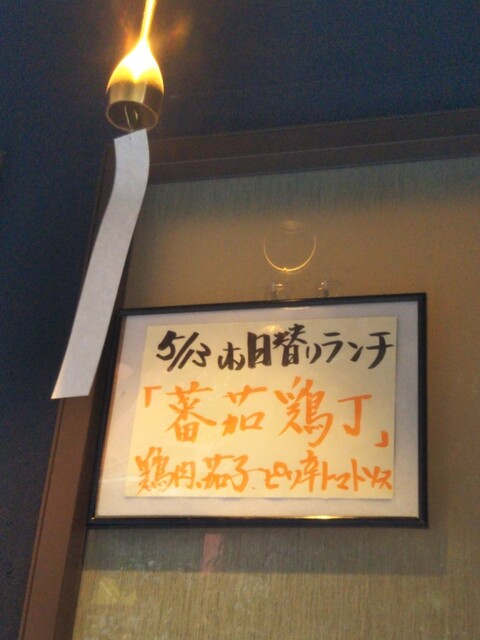 5/13 お日替りランチ
「蕃茄鶏丁」
鶏肉、茄子、ピリ辛トマトソース